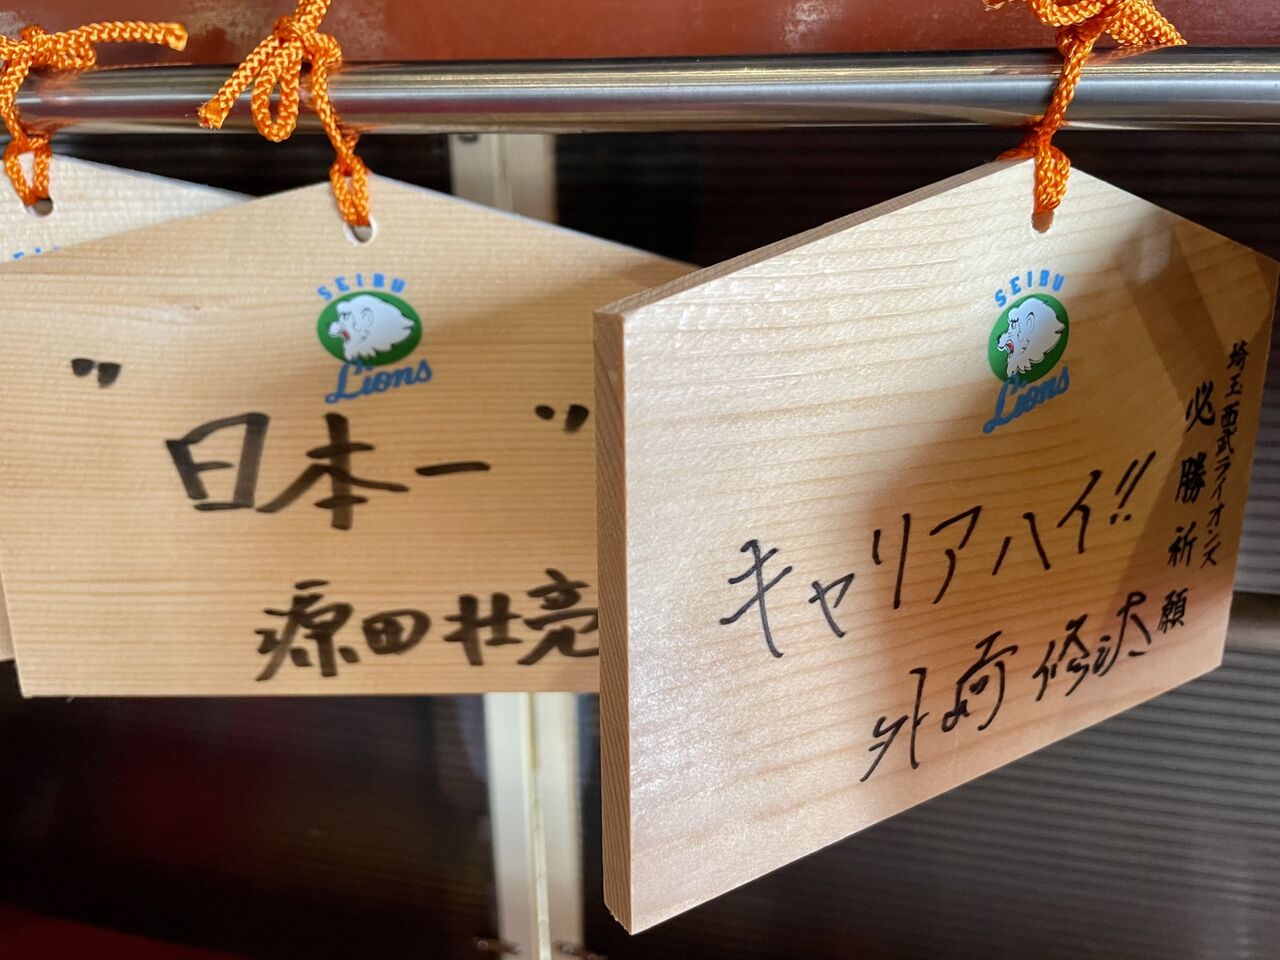 SEIBU
Lions
"日本一"
源田壮亮
SEIBU
Lions
埼玉西武ライオンズ
必勝祈願
キャリアハイ!!
外崎修汰